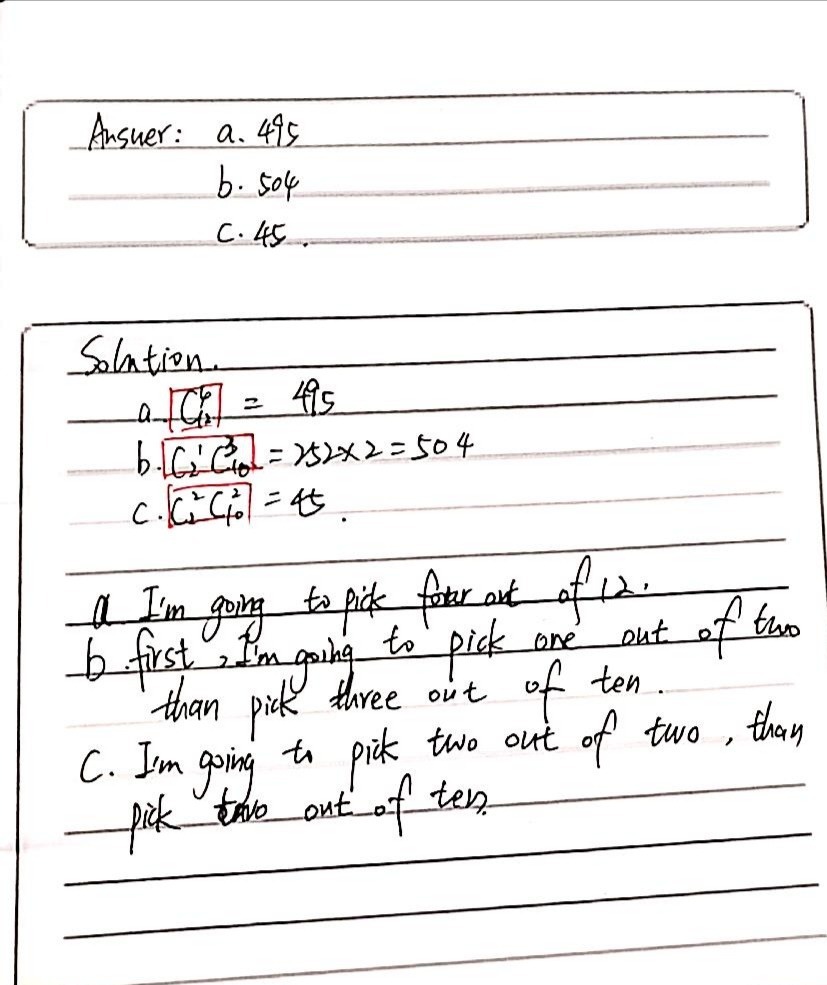 Answer: a. 495
b. 504
C. 45.
Solution.
a. C₁₂⁴ = 495
b. C₂¹ C₁₀³ = 252×2=504
C. C₂² C₁₀² = 45.
a I'm going to pick four out of 12.
b. first, I'm going to pick one out of two
than pick three out of ten.
C. I'm going to pick two out of two, than
pick two out of ten.